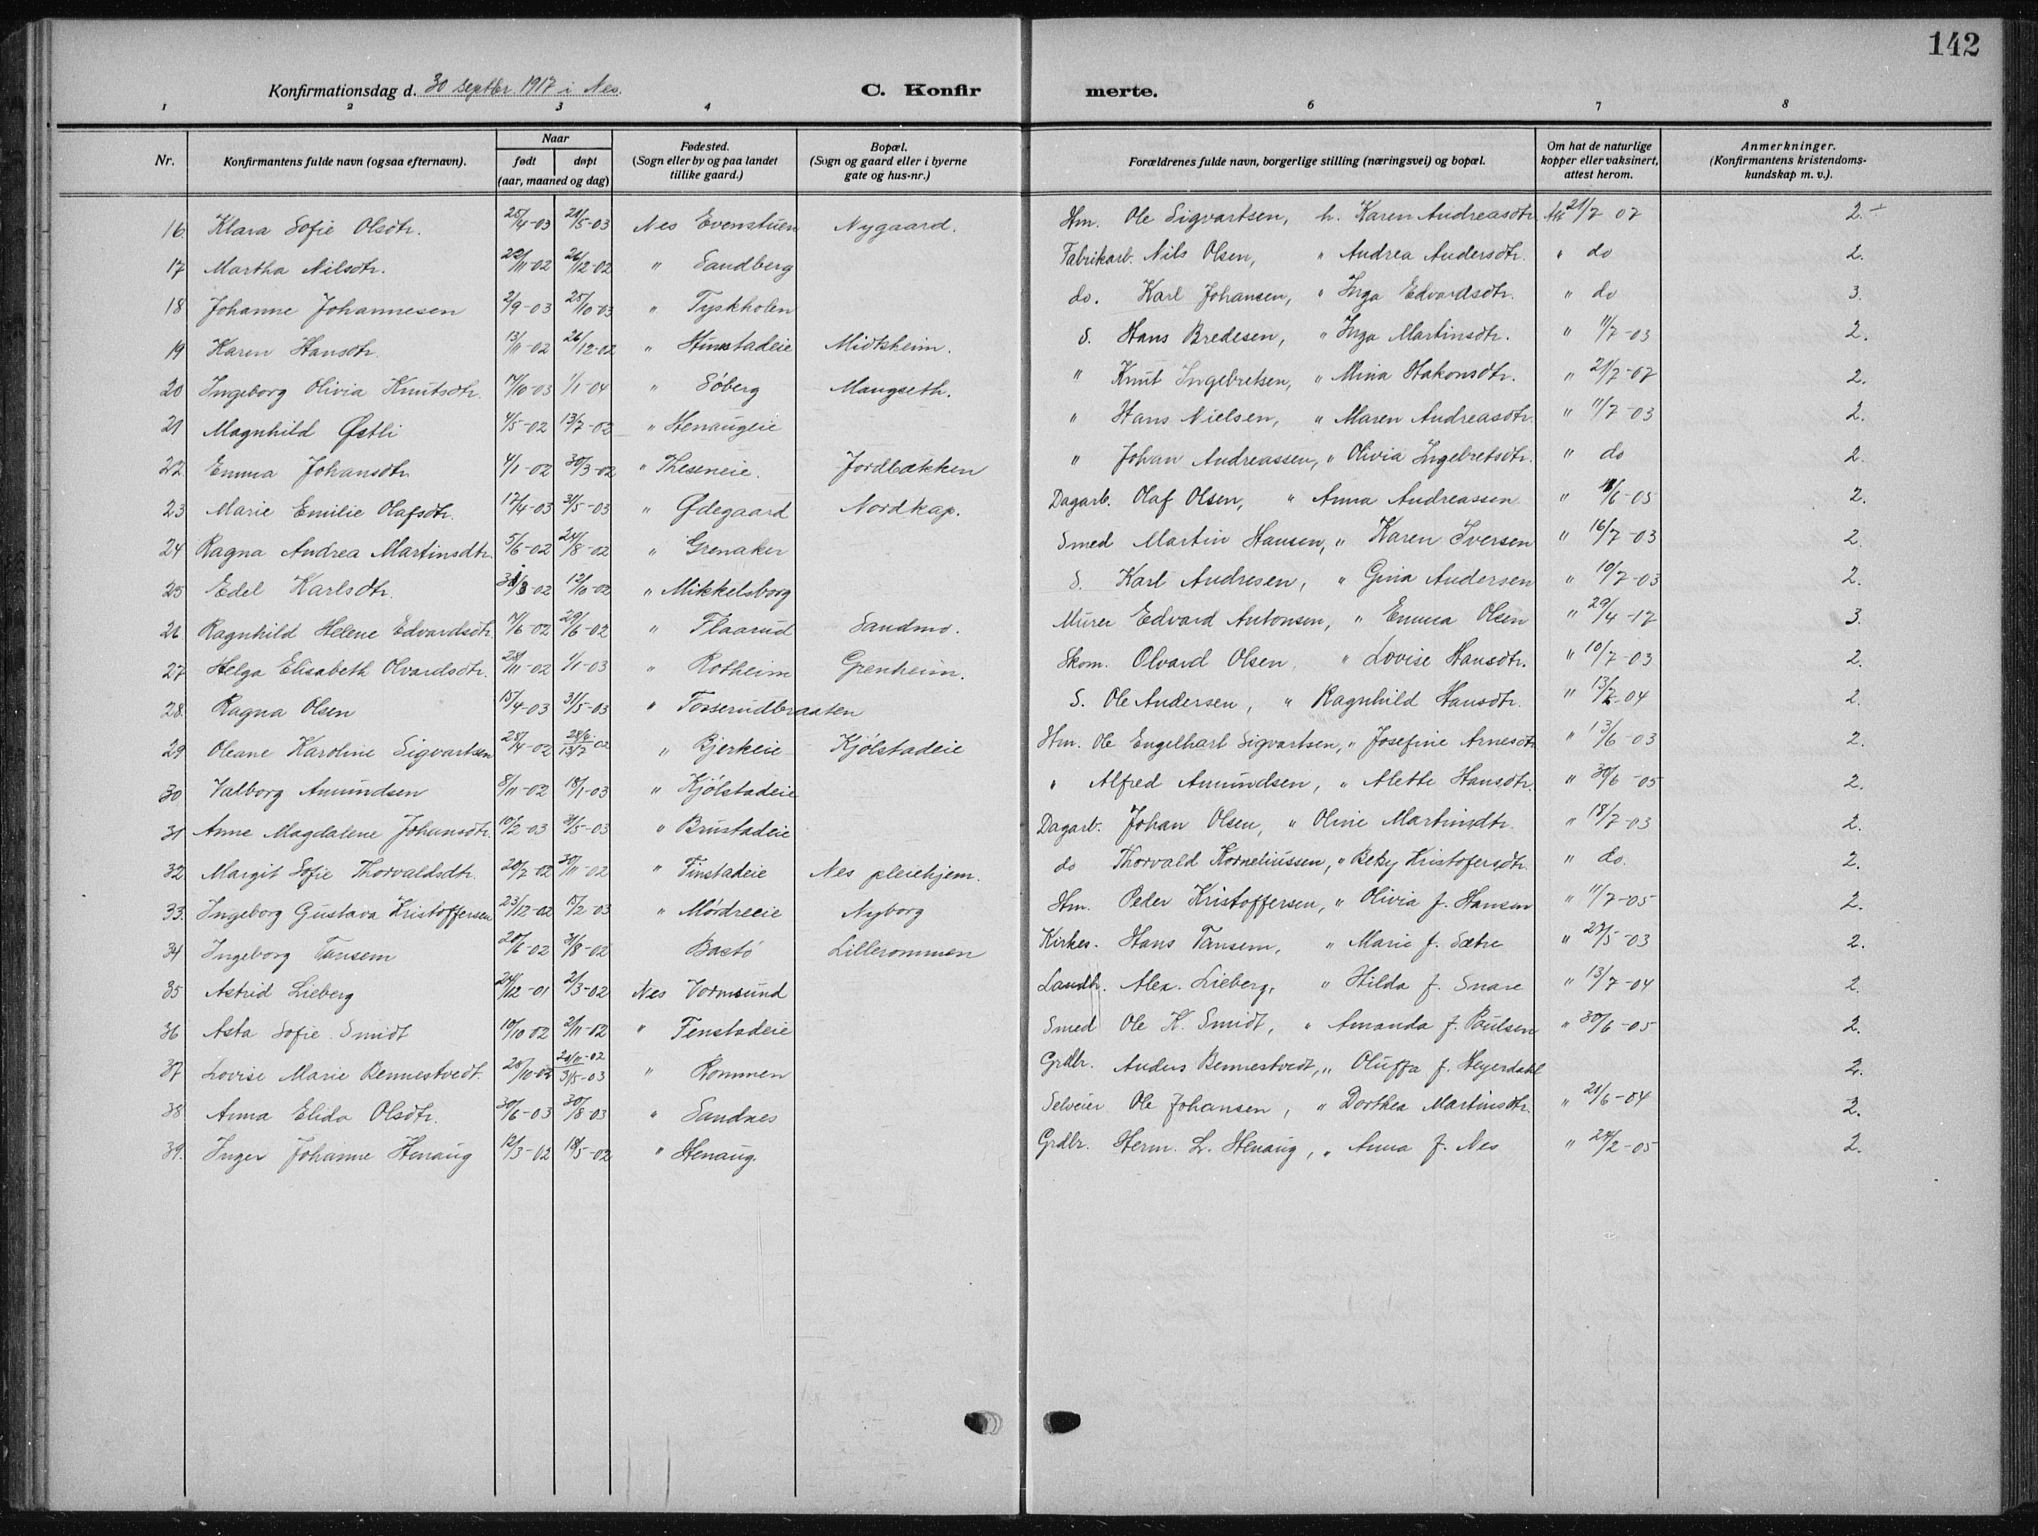 142
Konfirmationsdag d. 30 septbr. 1917 i Nes. C. Konfir merte.
1 2 3 4 6 7 8
Nr. Konfirmantens fulde navn (ogsaa efternavn). Naar født døpt (aar, maaned og dag) Fødested. (Sogn eller by og paa landet tillike gaard.) Bopæl. (Sogn og gaard eller i byerne gate og hus-nr.) Forældrenes fulde navn, borgerlige stilling (næringsvei) og bopæl. Om hat de naturlige kopper eller vaksinert, attest herom. Anmerkninger. (Konfirmantens kristendoms-kundskap m. v.).
16 Klara Sofie Olsdtr. 25/4-03 21/5-03 Nes Evenstuen Nygaard. Hm. Ole Sigvartsen, h. Karen Andreasdtr. 21/7 07 2.
17 Martha Nilsdtr. 22/11-02 26/12-02 " Sandberg Fabrikarb. Nils Olsen, " Andrea Andersdtr. " do 2.
18 Johanne Johannesen 2/9-03 25/10-03 " Tyskholen do. Karl Johansen, " Inga Edvardsdtr. " do 3.
19 Karen Hansdtr. 13/11-02 26/12-02 " Hunstadeie Midtsheim. S. Hans Bredesen, " Inga Martinsdtr. " 11/7-03 2.
20 Ingeborg Olivia Knutsdtr. 17/10-03 1/1-04 " Søberg Maugseth. " Knut Ingebretsen, " Mina Hakonsdtr. " 21/7-07 2.
21 Magnhild Østli 4/5-02 13/7-02 " Henaugeie " Hans Nielsen, " Maren Andreasdtr. " 11/7-03 2.
22. Emma Johansdtr. 4/1-02 30/3-02 " Theseneie. Jordbækken " Johan Andreassen, " Olivia Ingebretsdtr. " do 2.
23 Marie Emilie Olafsdtr. 17/4-03 31/5-03 " Ødegaard Nordkap. Dagarb. Olaf Olsen, " Anna Andreassen " /6-05 2.
24 Ragna Andrea Martinsdtr. 5/6-02 24/8-02 " Grenaker Smed Martin Hansen, " Karen Iversen " 16/7-03 2.
25 Edel Karlsdtr. 31/3-02 12/10-02 " Mikkelsborg S. Karl Andresen, " Gina Andersen " 10/7-03 2.
26 Ragnhild Helene Edvardsdtr. 7/6-02 29/6-02 " Flaarud Sandmo. Murer Edvard Antonsen, " Emma Olsen " 29/4-17 3.
27 Helga Elisabeth Olvardsdtr. 28/11-02 1/1-03 " Rotheim Grenheim. Skom. Olvard Olsen, " Lovise Hansdtr. " 10/7-03 2.
28. Ragna Olsen 15/4-03 31/5-03 " Fosserudbraaten S. Ole Andersen, " Ragnhild Hansdtr. " 13/7-04 2.
29 Oleane Karoline Sigvartsen 25/4-02 28/6 13/7-02 " Bjerkeie Kjølstadeie Hm. Ole Engelhart Sigvartsen, " Josefine Arnesdtr " 13/6-03 2.
30 Valborg Amundsen 8/11-02 18/1-03 " Kjølstadeie " Alfred Amundsen, " Alette Hansdtr. " 30/6-05 2.
31 Anne Magdalene Johansdtr. 10/2-03 31/5-03 " Brustadeie Dagarb. Johan Olsen, " Oline Martinsdtr. " 18/7-03 2.
32 Margit Sofie Thorvaldsdtr. 20/7-02 30/11-02 " Finstadeie Nes pleiehjem. do Thorvald Korneliussen, " Betsy Kristofersdtr. " do. 2.
33. Ingeborg Gustava Kristoffersen 23/12-02 15/2-03 " Mørdreeie Nyborg Hm. Peder Kristoffersen, " Olivia f. Hansen " 11/7-05 2.
34 Ingeborg Tansem 20/6-02 31/8-02 Bastø Lillerommen Kirkes. Hans Tansem, " Marie f. Sætre " 27/5-03 2.
35 Astrid Lieberg 24/12-01 2/3-02 Nes Vormsund Landh. Alex. Lieberg, " Hilda f. Snare " 13/7-04 2.
36 Asta Sofie Smidt 10/10 02 2/11-02 " Fenstadeie Smed Ole K. Smidt, " Amanda f. Paulsen " 30/6-05 2.
37 Lovise Marie Bennestvedt. 28/10-02 21/11-02 31/5-03 " Rommen Grdbr. Anders Bennestvedt, " Oluffa f. Heyerdahl 2.
38 Anna Elida Olsdtr. 30/6-03 30/8-03 " Sandnes Selveier Ole Johansen, " Dorthea Martinsdtr. " 21/6-04 2.
39. Inger Johanne Henaug 12/3-02 18/5-02 " Henaug. Grdbr. Herm. L. Henaug, " Anna f. Nes " 24/2-05 2.